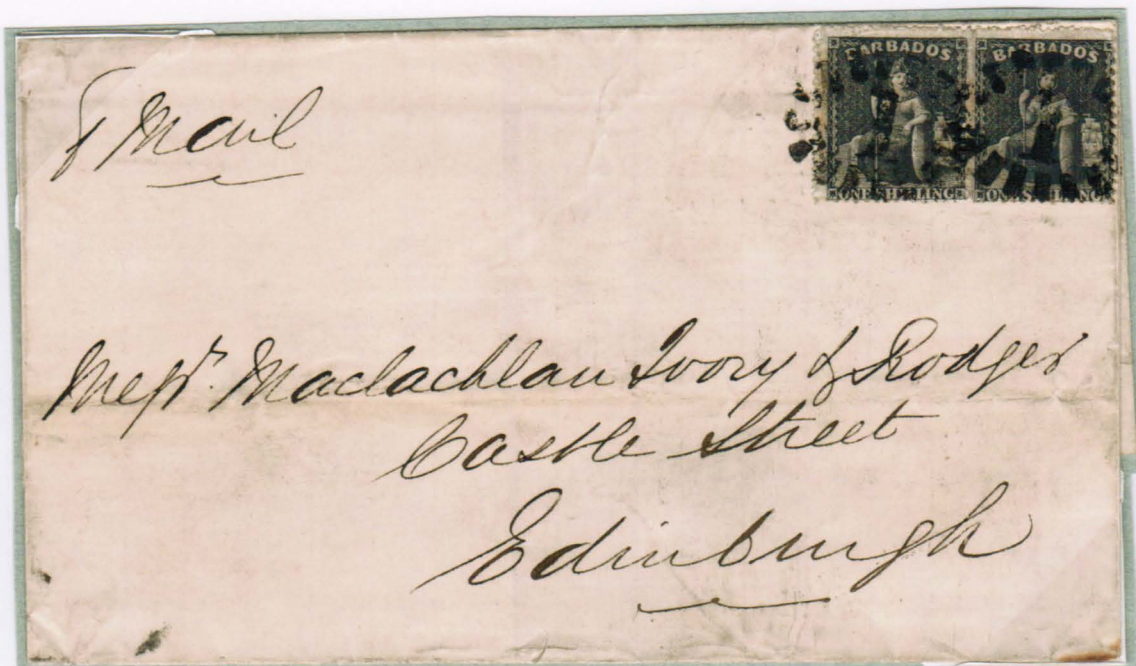 BARBADOS BARBADOS
ONE SHILLING ONE SHILLING
P Mail
Messrs. Maclachlan Ivory & Rodger
Castle Street
Edinburgh